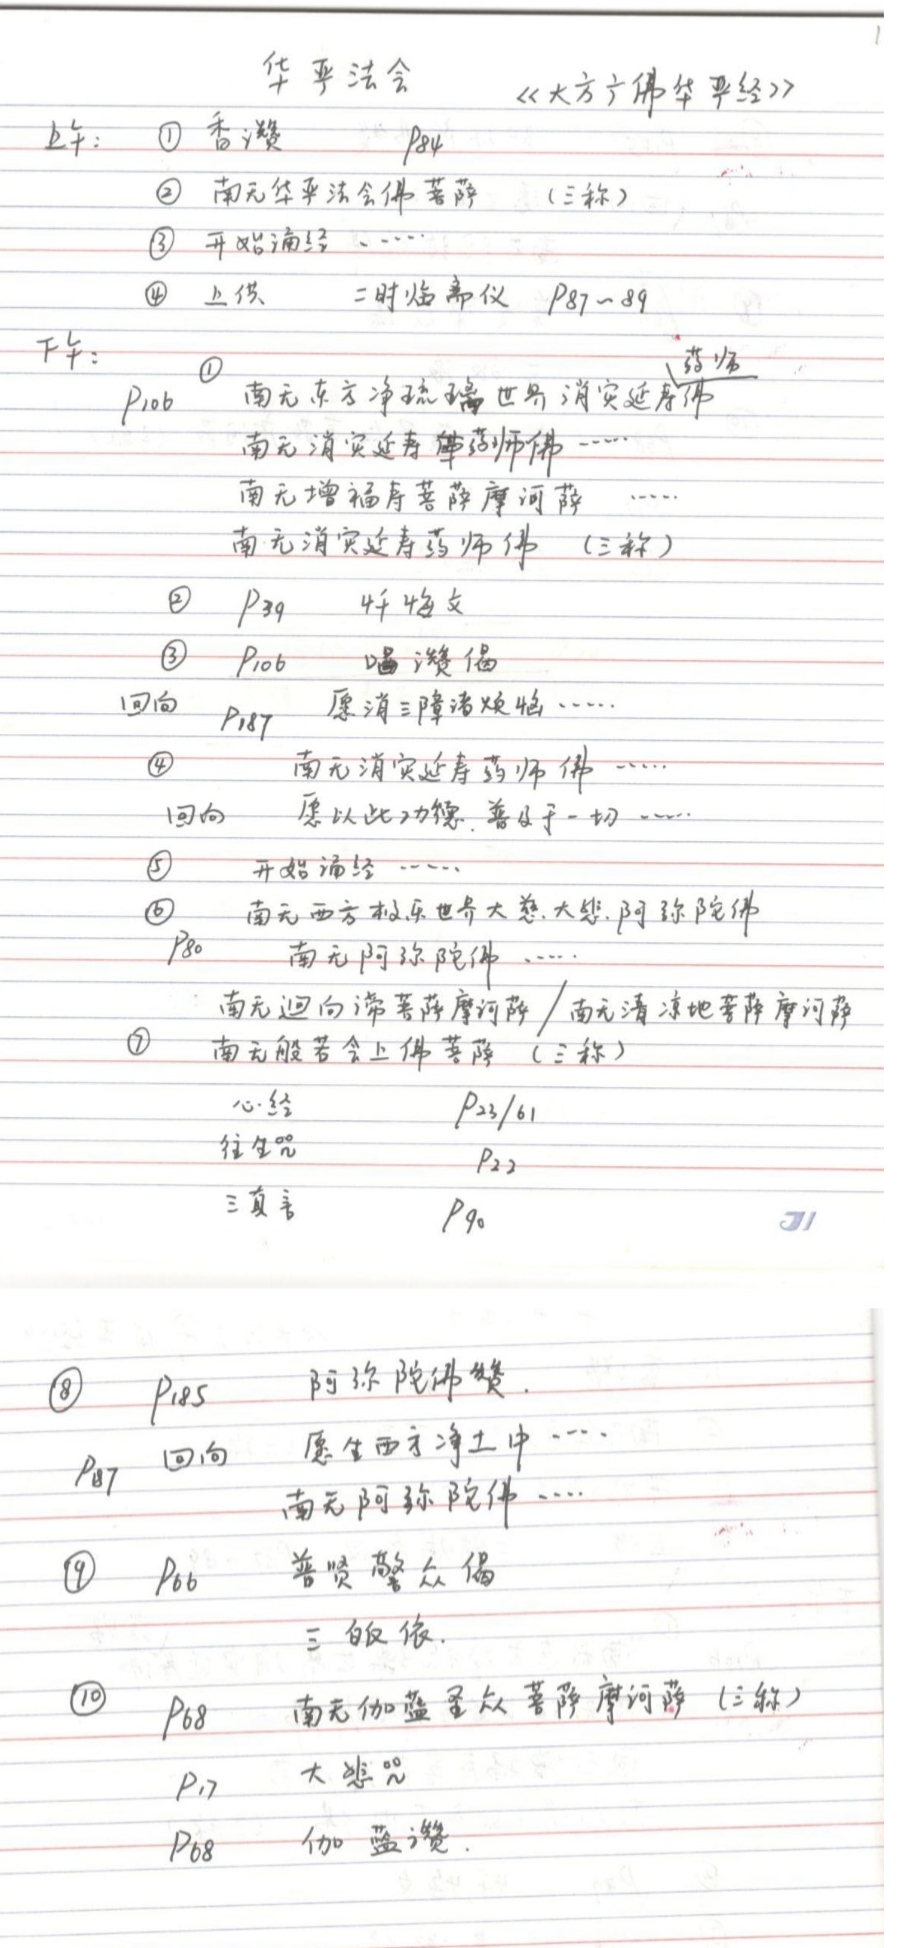 1
华严法会 《大方广佛华严经》
上午: ① 香讚 P84
② 南无华严法会佛菩萨 (三称)
③ 开始诵经 ……
④ 上供 二时临斋仪 P87~89
下午: ① 药师
P106 南无东方净琉璃世界消灾延寿佛
南无消灾延寿药师佛 ……
南无增福寿菩萨摩诃萨 ……
南无消灾延寿药师佛 (三称)
② P39 忏悔文
③ P106 唱讚偈
回向 P187 愿消三障诸烦恼 ……
④ 南无消灾延寿药师佛 ……
回向 愿以此功德、普及于一切 ……
⑤ 开始诵经 ……
⑥ 南无西方极乐世界大慈、大悲、阿弥陀佛
P80 南无阿弥陀佛 ……
南无迴向谛菩萨摩诃萨/南无清凉地菩萨摩诃萨
⑦ 南无般若会上佛菩萨 (三称)
心经 P23/61
往生咒 P22
三真言 P90
⑧ P185 阿弥陀佛赞.
P187 回向 愿生西方净土中 ……
南无阿弥陀佛 ……
⑨ P66 普贤警众偈
三皈依.
⑩ P68 南无伽蓝圣众菩萨摩诃萨 (三称)
P17 大悲咒
P68 伽蓝讚.